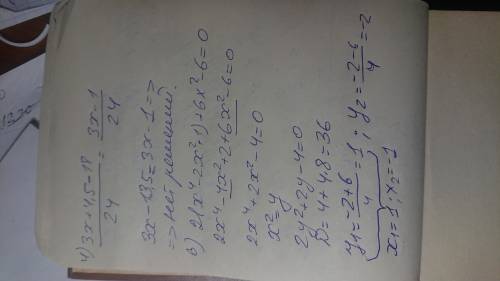 4) (3x+4,5-18)/24 = (3x-1)/24
3x-13,5=3x-1 =>
=> нет решений.
в) 2(x⁴-2x²+1)+6x²-6=0
2x⁴-4x²+2+6x²-6=0
2x⁴+2x²-4=0
x²=y
2y²+2y-4=0
D=4+4·8=36
y₁=(-2+6)/4=1; y₂=(-2-6)/4=-2
x₁=1; x₂=-1